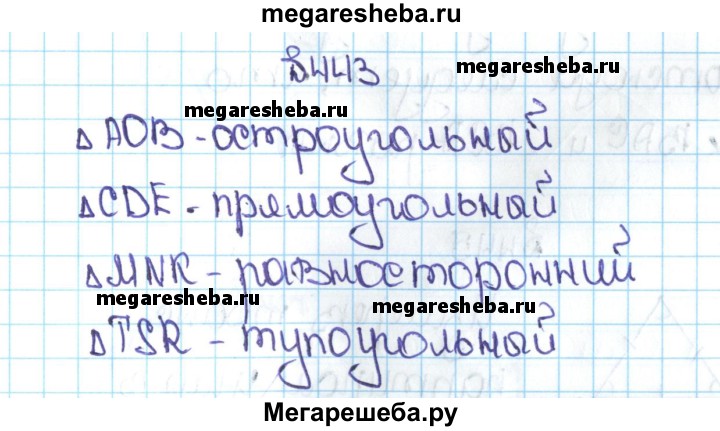 megaresheba.ru
№443
megaresheba.ru
megaresheba.ru
Δ AOB - остроугольный
Δ CDE - прямоугольный
Δ MNK - равносторонний
megaresheba.ru
megaresheba.ru
Δ TSR - тупоугольный
Мегарешеба.ру